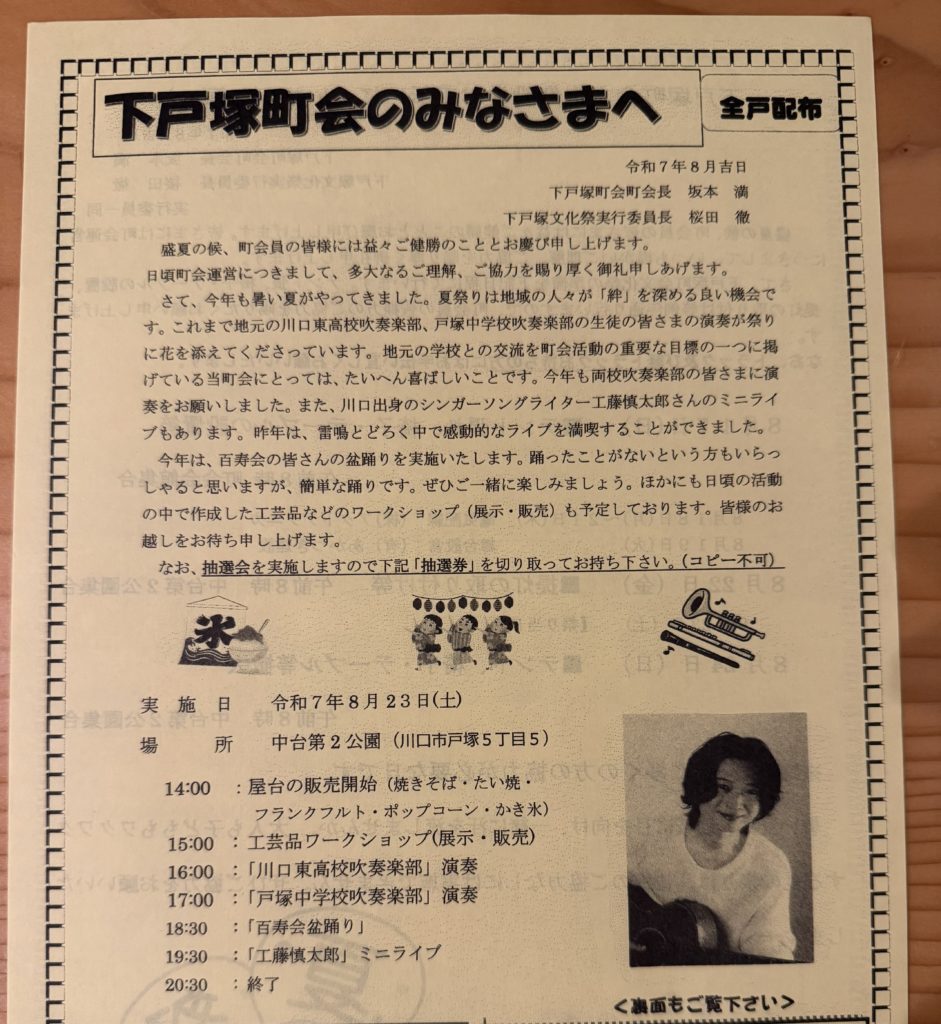 下戸塚町会のみなさまへ
全戸配布
令和７年８月吉日
下戸塚町会町会長　坂本　満
下戸塚文化祭実行委員長　桜田　徹
盛夏の候、町会員の皆様には益々ご健勝のこととお慶び申し上げます。
日頃町会運営につきまして、多大なるご理解、ご協力を賜り厚く御礼申しあげます。
さて、今年も暑い夏がやってきました。夏祭りは地域の人々が「絆」を深める良い機会で
す。これまで地元の川口東高校吹奏楽部、戸塚中学校吹奏楽部の生徒の皆さまの演奏が祭り
に花を添えてくださっています。地元の学校との交流を町会活動の重要な目標の一つに掲
げている当町会にとっては、たいへん喜ばしいことです。今年も両校吹奏楽部の皆さまに演
奏をお願いしました。また、川口出身のシンガーソングライター工藤慎太郎さんのミニライ
ブもあります。昨年は、雷鳴とどろく中で感動的なライブを満喫することができました。
今年は、百寿会の皆さんの盆踊りを実施いたします。踊ったことがないという方もいらっ
しゃると思いますが、簡単な踊りです。ぜひご一緒に楽しみましょう。ほかにも日頃の活動
の中で作成した工芸品などのワークショップ（展示・販売）も予定しております。皆様のお
越しをお待ち申し上げます。
なお、抽選会を実施しますので下記「抽選券」を切り取ってお持ち下さい。（コピー不可）
氷
実　施　日　　令和７年８月２３日(土)
場　　　所　　中台第２公園（川口市戸塚５丁目５）
14:00　：屋台の販売開始（焼きそば・たい焼・
フランクフルト・ポップコーン・かき氷）
15:00　：工芸品ワークショップ(展示・販売)
16:00　：「川口東高校吹奏楽部」演奏
17:00　：「戸塚中学校吹奏楽部」演奏
18:30　：「百寿会盆踊り」
19:30　：「工藤慎太郎」ミニライブ
20:30　：終了
＜裏面もご覧下さい＞